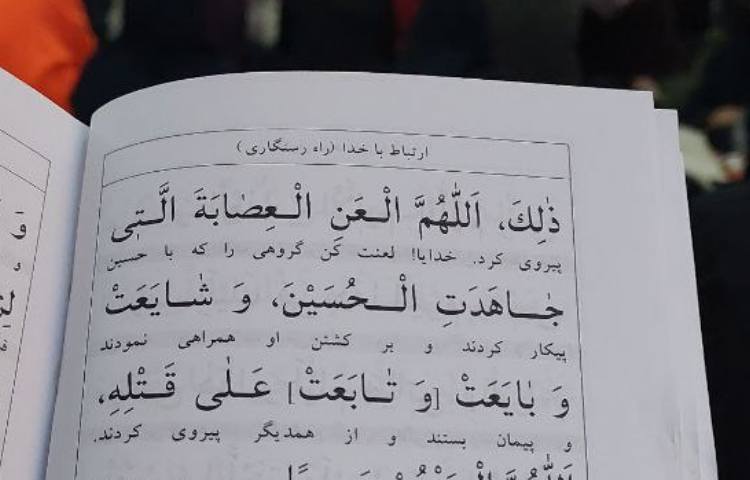 ارتباط با خدا (راه رستگاری)
ذٰلِكَ، اَللّٰهُمَّ الْـعَنِ الْـعِصٰابَةَ الَّـتِى
پیروی کرد. خدایا! لعنت کن گروهی را که با حسین
جٰـاهَدَتِ الْـحُسَيْنَ، وَ شٰـايَعَتْ
پیکار کردند و بر کشتن او همراهی نمودند
وَ بٰايَعَتْ [وَ تٰـابَعَتْ] عَـلٰى قَـتْلِهِ،
و پیمان بستند و از همدیگر پیروی کردند.